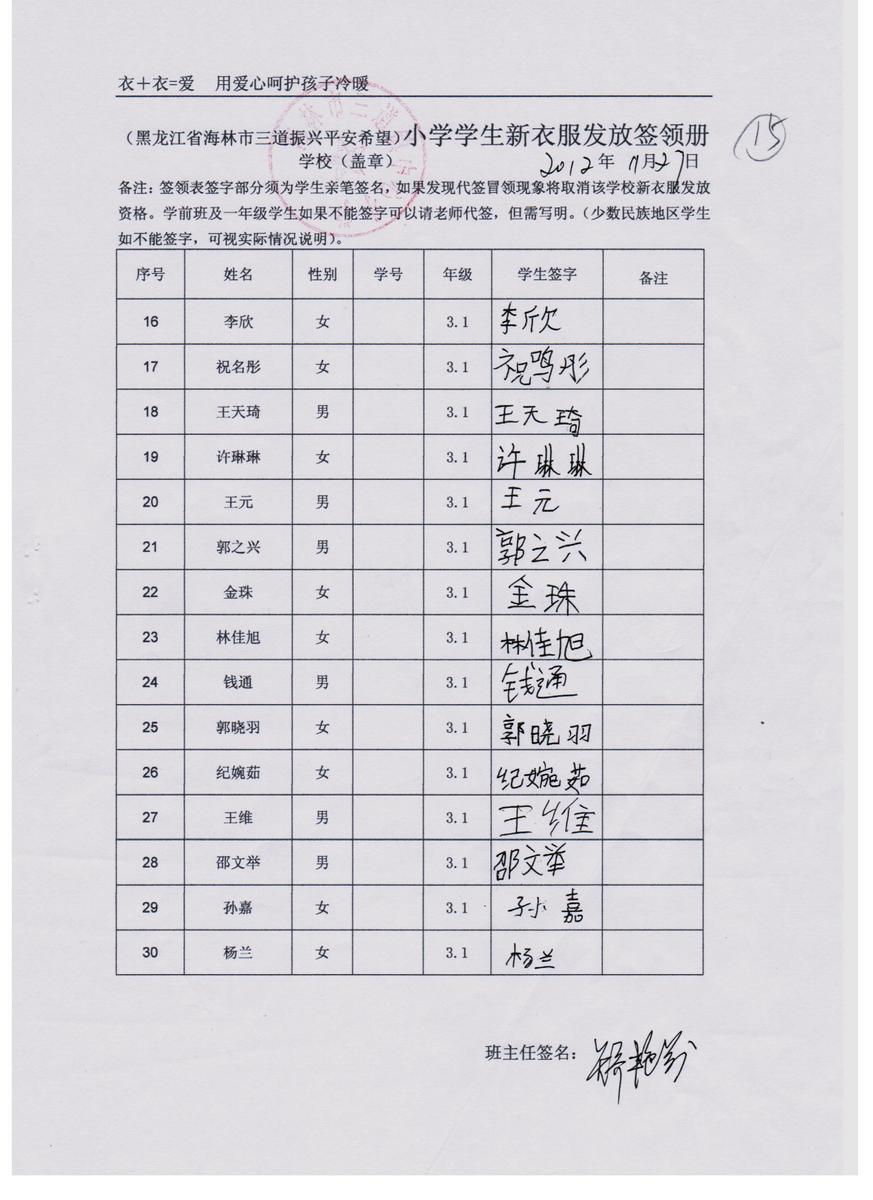 衣＋衣=爱 用爱心呵护孩子冷暖
（黑龙江省海林市三道振兴平安希望）小学学生新衣服发放签领册
学校（盖章） 2012年 11月27日
15
备注：签领表签字部分须为学生亲笔签名，如果发现代签冒领现象将取消该学校新衣服发放
资格。学前班及一年级学生如果不能签字可以请老师代签，但需写明。（少数民族地区学生
如不能签字，可视实际情况说明）。
序号 姓名 性别 学号 年级 学生签字 备注
16 李欣 女 3.1 李欣
17 祝名彤 女 3.1 祝鸣彤
18 王天琦 男 3.1 王天琦
19 许琳琳 女 3.1 许琳琳
20 王元 男 3.1 王元
21 郭之兴 男 3.1 郭之兴
22 金珠 女 3.1 金珠
23 林佳旭 女 3.1 林佳旭
24 钱通 男 3.1 钱通
25 郭晓羽 女 3.1 郭晓羽
26 纪婉茹 女 3.1 纪婉茹
27 王维 男 3.1 王维
28 邵文举 男 3.1 邵文举
29 孙嘉 女 3.1 孙嘉
30 杨兰 女 3.1 杨兰
班主任签名：